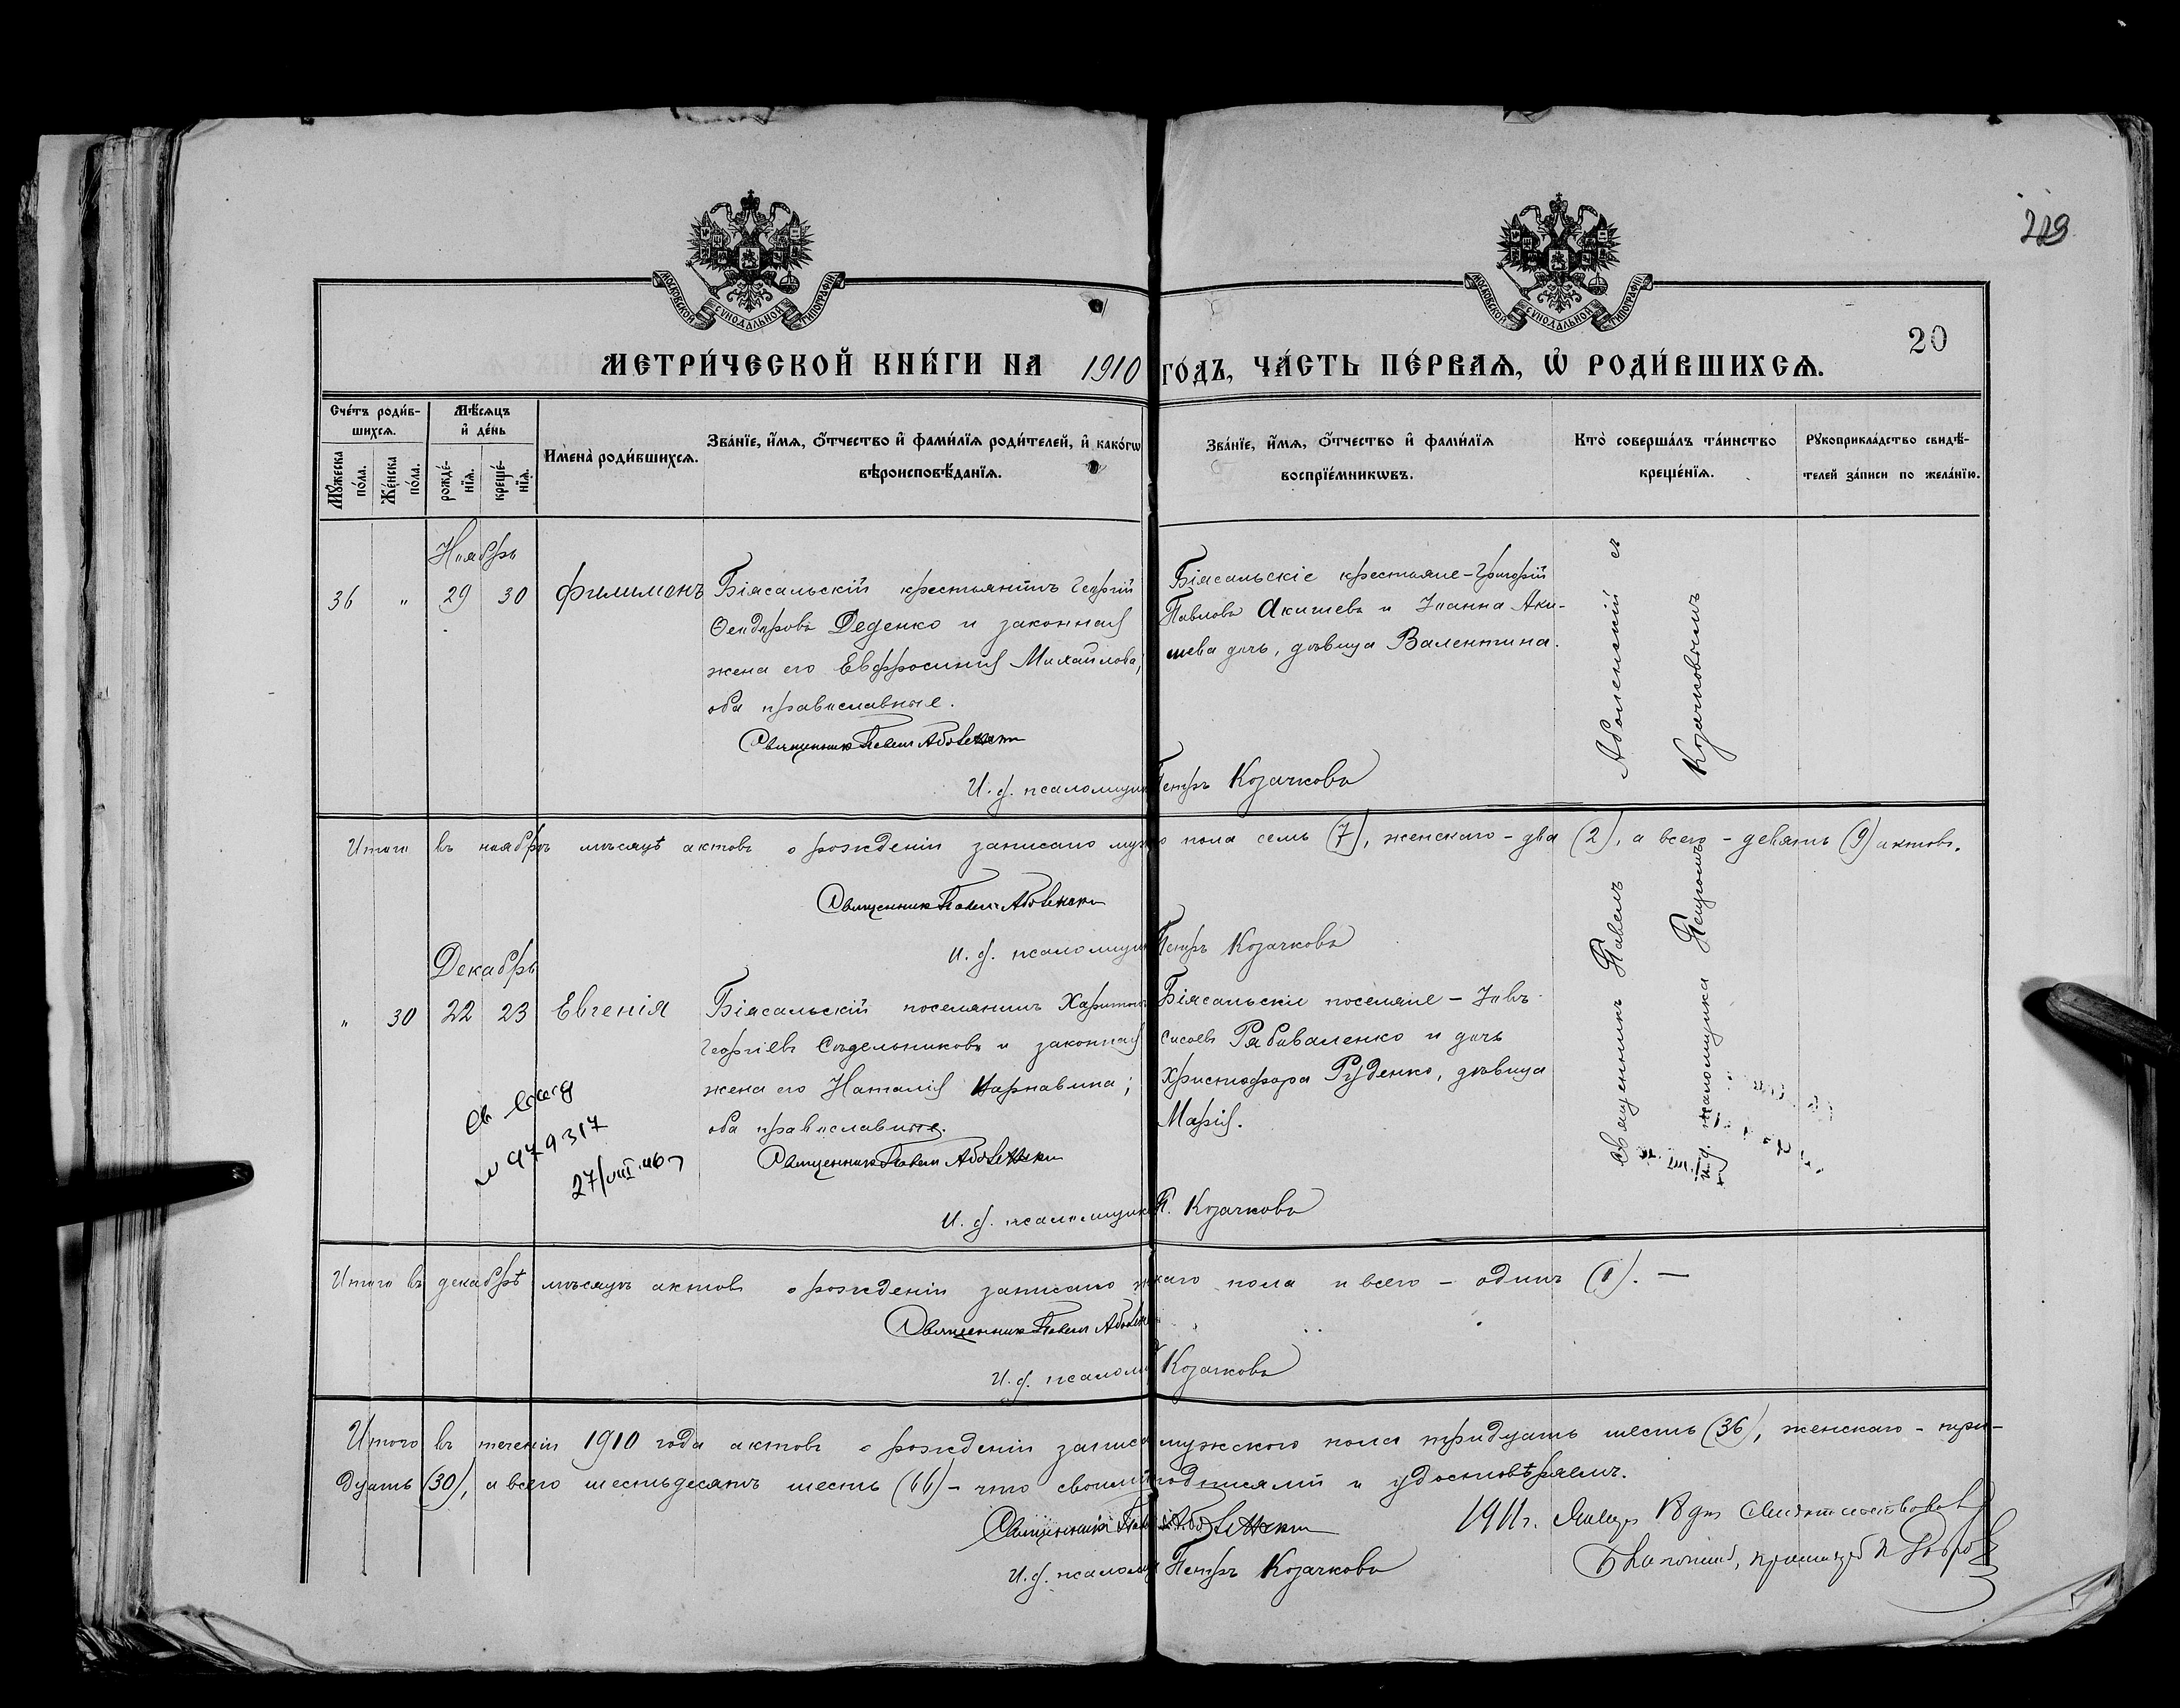 229
20
МОСКОВСКОЙ СУНОДАЛЬНОЙ ТИПОГРАФІИ
МОСКОВСКОЙ СУНОДАЛЬНОЙ ТИПОГРАФІИ
МЕТРИ́ЧЕСКОЙ КНИ́ГИ НА 1910 ГО́ДЪ, ЧА́СТЬ ПЕ́РВАѦ, Ѡ РОДИ́ВШИХСѦ.
Сче́тъ роди́вшихсѧ.
Мꙋ́жеска по́ла.
Же́нска по́ла.
Мѣ́сѧцъ и҆ де́нь
рожде́нїѧ.
креще́нїѧ.
И҆мена̀ роди́вшихсѧ.
Зва́нїе, и҆́мѧ, ѻ҆́тчество и҆ фами́лїѧ роди́телей, и҆ како́гѡ
вѣроисповѣ́данїѧ.
Зва́нїе, и҆́мѧ, ѻ҆́тчество и҆ фами́лїѧ
воспрїе́мникѡвъ.
Кто̀ соверша́лъ та́инство
креще́нїѧ.
Рꙋкоприкла́дство свидѣ́-
телей за́писи по жела́нїю.
Ноябрь
36 " 29 30 Филимонъ
Біясальскій крестьянинъ Георгій
Ѳеодоровъ Деденко и законная
жена его Евфросинія Михайлова;
оба православные.
Священникъ Павелъ Аболенскій
И. д. псаломщика Петръ Козачковъ
Біясальскіе крестьяне - Григорій
Павловъ Акишевъ и Іоанна Аки-
шева дочь, дѣвица Валентина.
Священникъ Павелъ Аболенскій съ
и. д. псаломщика Петромъ Козачковымъ
Итого въ ноябрѣ мѣсяцѣ актовъ о рожденіи записано муж пола семь (7), женскаго - два (2), а всего - девять (9) актовъ.
Священникъ Павелъ Аболенскій
И. д. псаломщика Петръ Козачковъ
Декабрь
" 30 22 23 Евгенія
Біясальскій поселянинъ Харитонъ
Георгіевъ Сѣдельниковъ и законная
жена его Наталія Варнавина;
оба православные.
Священникъ Павелъ Аболенскій
И. д. псаломщика П. Козачковъ
Біясальскіе поселяне - Іовъ
Сисоевъ Рабоваленко и дочь
Христофора Руденко, дѣвица
Марія.
№ 979317
27/VIII 46 г
Итого въ декабрѣ мѣсяцѣ актовъ о рожденіи записано ж каго пола и всего - одинъ (1). —
Священникъ Павелъ Аболенскій
И. д. псалом Козачковъ
Итого въ теченіи 1910 года актовъ о рожденіи записа мужского пола тридцать шесть (36), женскаго - три-
дцать (30), а всего шестьдесятъ шесть (66) - что своими подписями и удостовѣряемъ.
Священникъ Павелъ Аболенскій
И. д. псалом Петръ Козачковъ
1911 г. Января 18 дня свидѣтельствовалъ
Благочинный, протоіерей